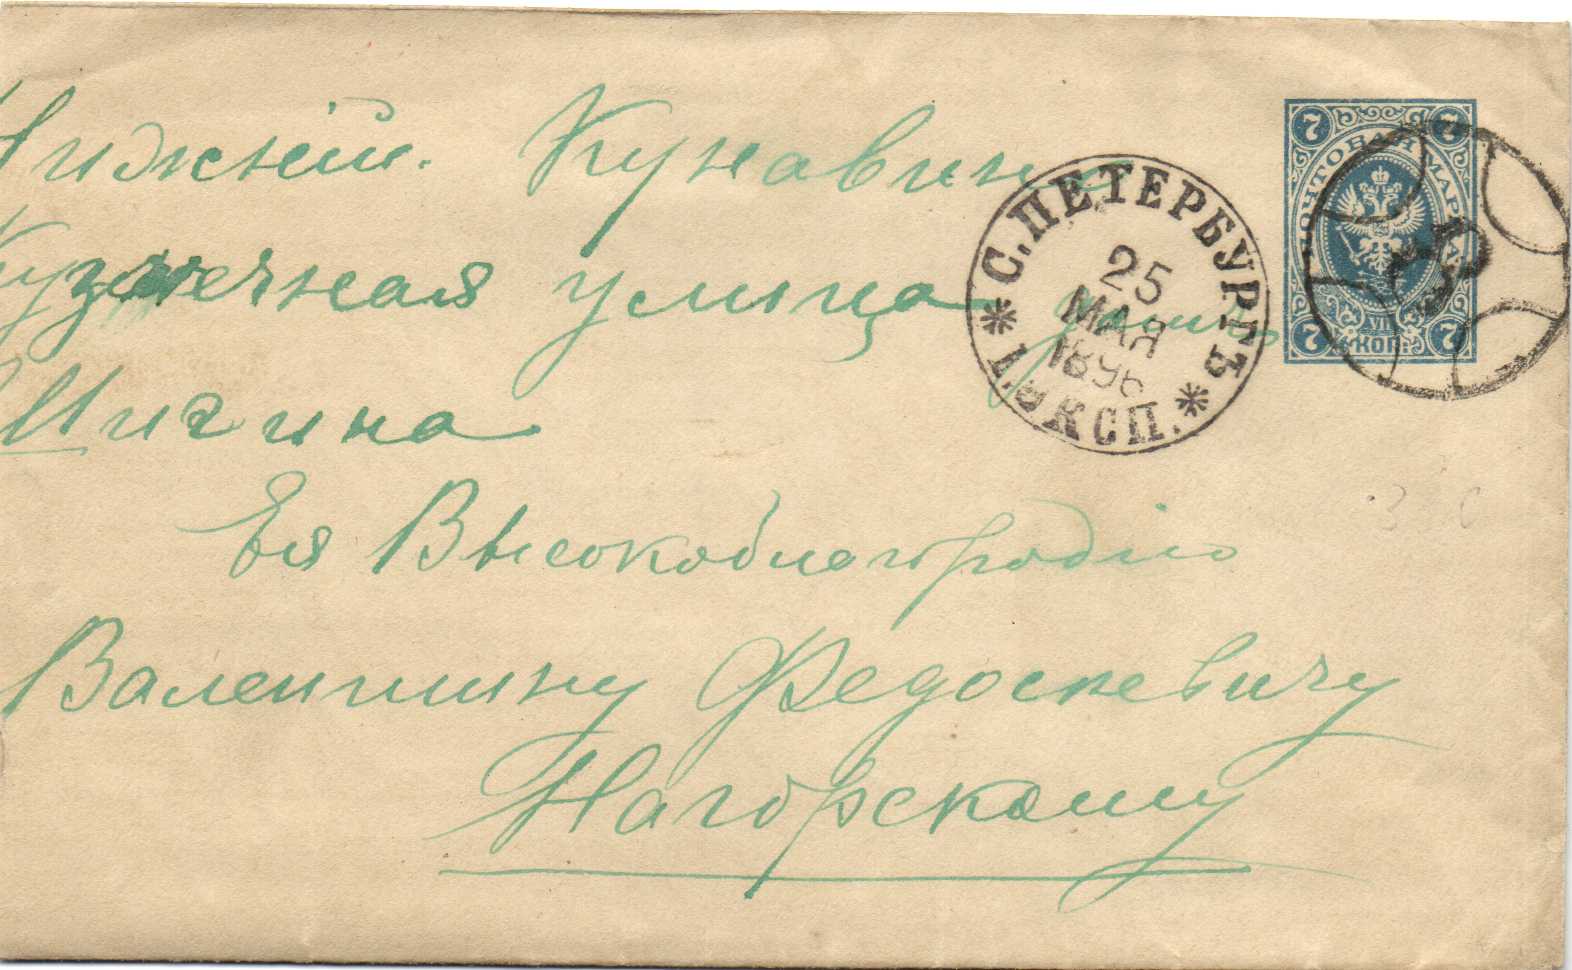 Нижній. Кунавино
Кузнечная улица домъ
Шигина
Ея Высокоблагородію
Валентину Федосеевичу
Нагорскому
С. ПЕТЕРБУРГЪ
25
МАЯ
1896
1. ЭКСП.
7 7
ПОЧТОВАЯ МАРКА
7 VII КОП. 7
5